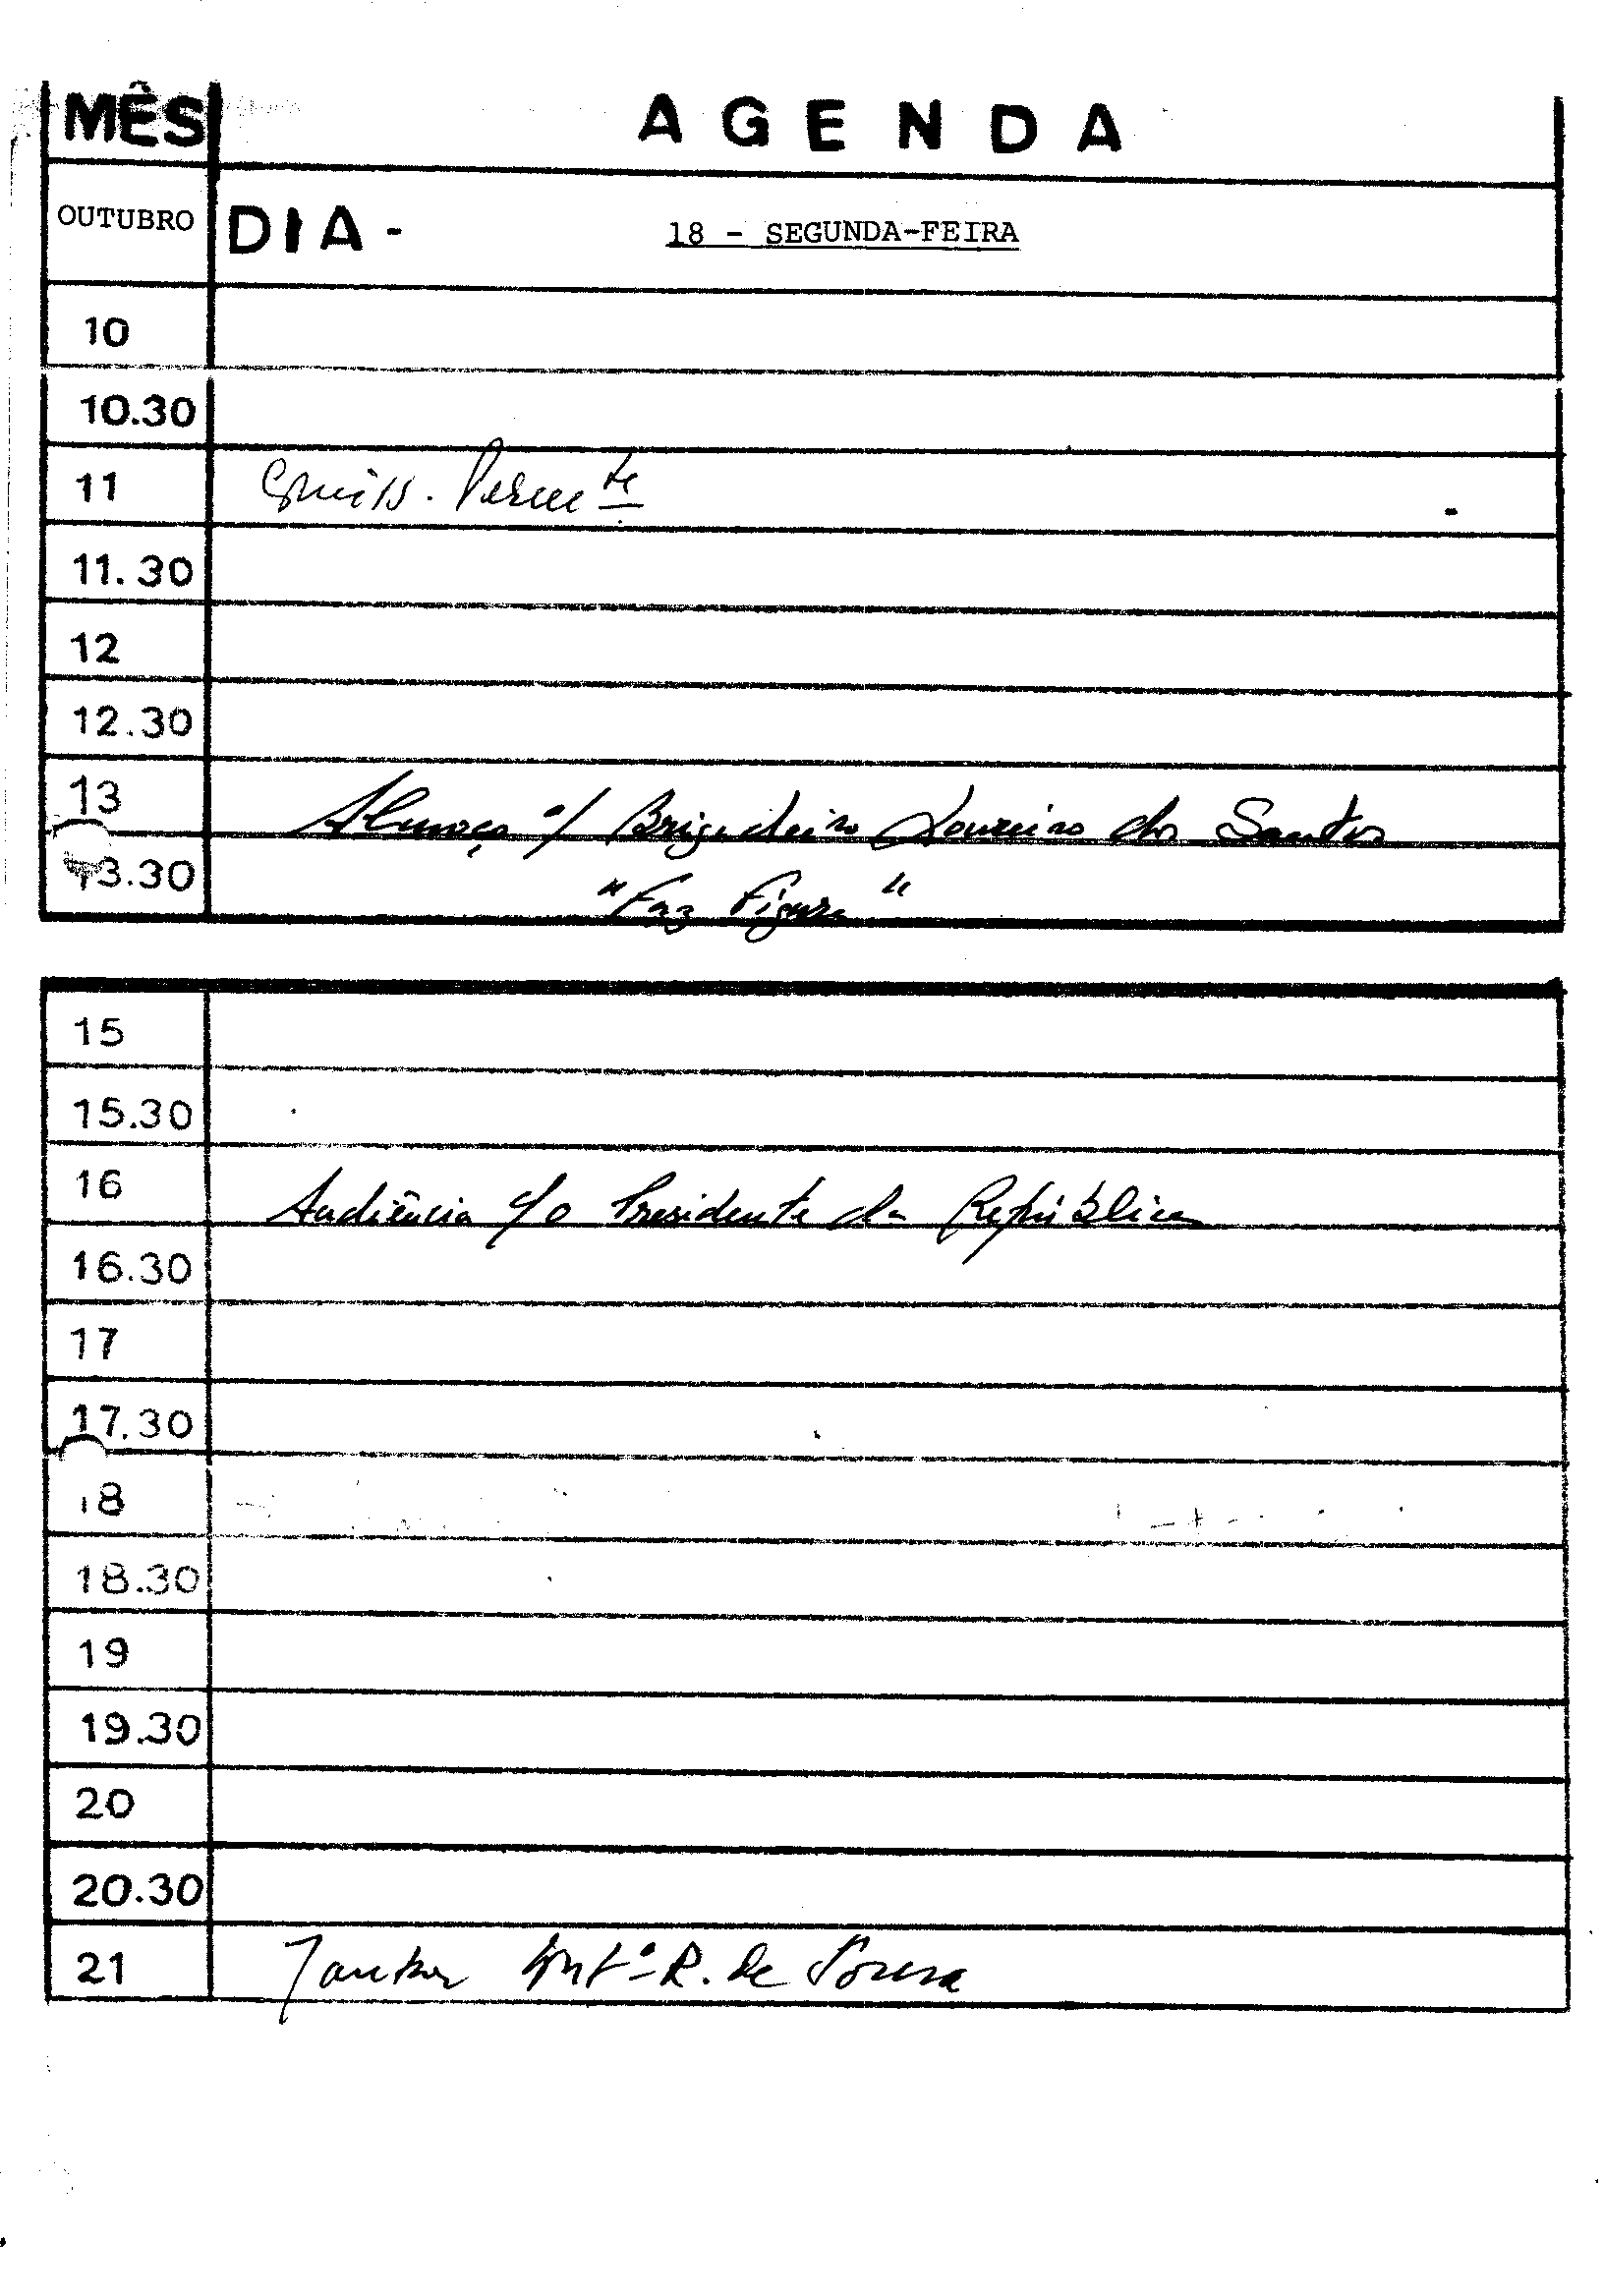 MÊS AGENDA
OUTUBRO DIA - 18 - SEGUNDA-FEIRA
10
10.30
11 Comiss. Permte
11.30
12
12.30
13 Almoço c/ Brigadeiro Loureiro dos Santos
13.30 "Faz Figura"
15
15.30
16 Audiência c/o Presidente da República
16.30
17
17.30
18
18.30
19
19.30
20
20.30
21 Jantar R. de Sousa